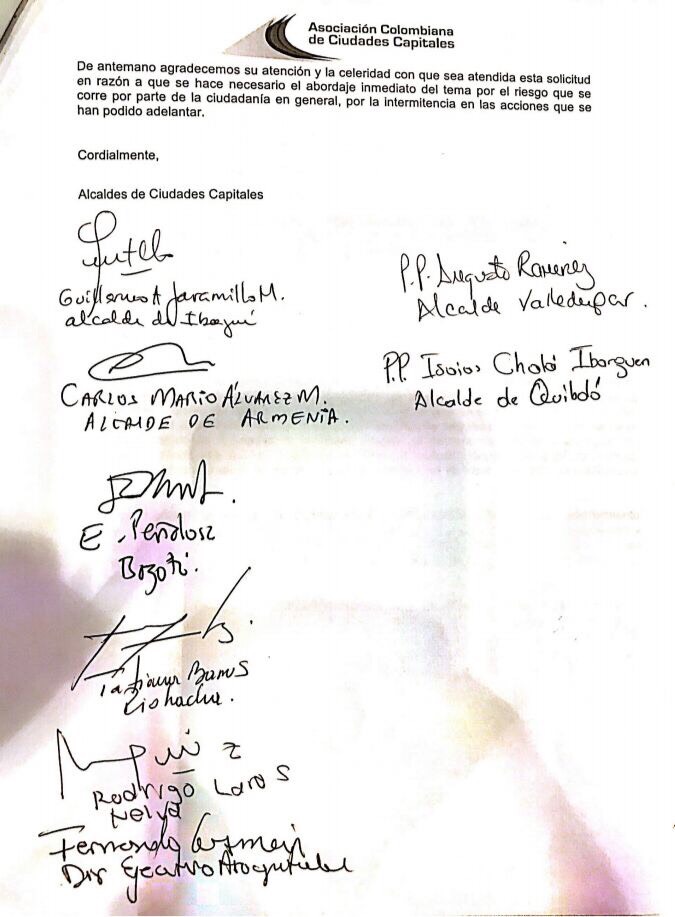 Asociación Colombiana
de Ciudades Capitales
De antemano agradecemos su atención y la celeridad con que sea atendida esta solicitud
en razón a que se hace necesario el abordaje inmediato del tema por el riesgo que se
corre por parte de la ciudadanía en general, por la intermitencia en las acciones que se
han podido adelantar.
Cordialmente,
Alcaldes de Ciudades Capitales
Guillermo A Jaramillo M.
alcalde de Ibagué
CARLOS MARIO ÁLVAREZ M.
ALCALDE DE ARMENIA.
E. Peñalosa
Bogotá.
Barros
Riohacha.
Rodrigo Lara S
Neiva
Fernando
Dir Ejecutivo
P.P. Augusto Ramirez
Alcalde Valledupar.
P.P. Isaias Chalá Ibarguen
Alcalde de Quibdó